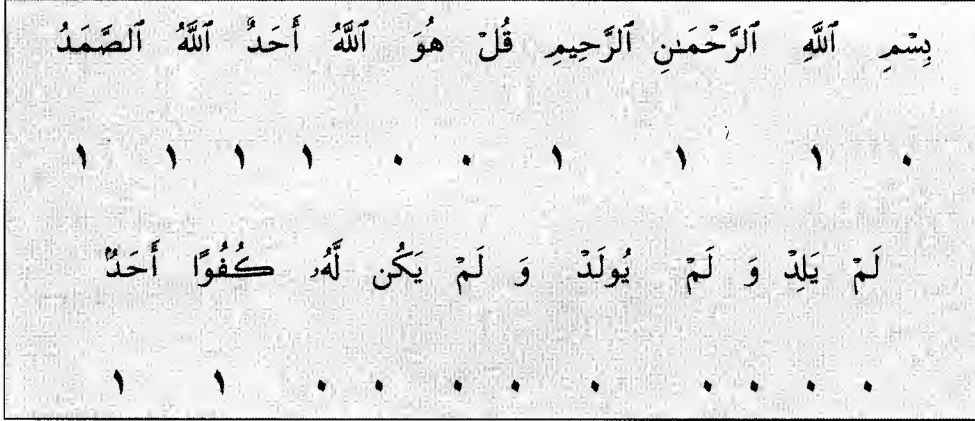 بِسْمِ ٱللَّهِ ٱلرَّحْمَـٰنِ ٱلرَّحِيمِ قُلْ هُوَ ٱللَّهُ أَحَدٌ ٱللَّهُ ٱلصَّمَدُ
٠ ١ ١ ١ ٠ ٠ ١ ١ ١ ١
لَمْ يَلِدْ وَ لَمْ يُولَدْ وَ لَمْ يَكُن لَّهُۥ كُفُوًا أَحَدٌۢ
٠ ٠ ٠ ٠ ٠ ٠ ٠ ٠ ٠ ١ ١